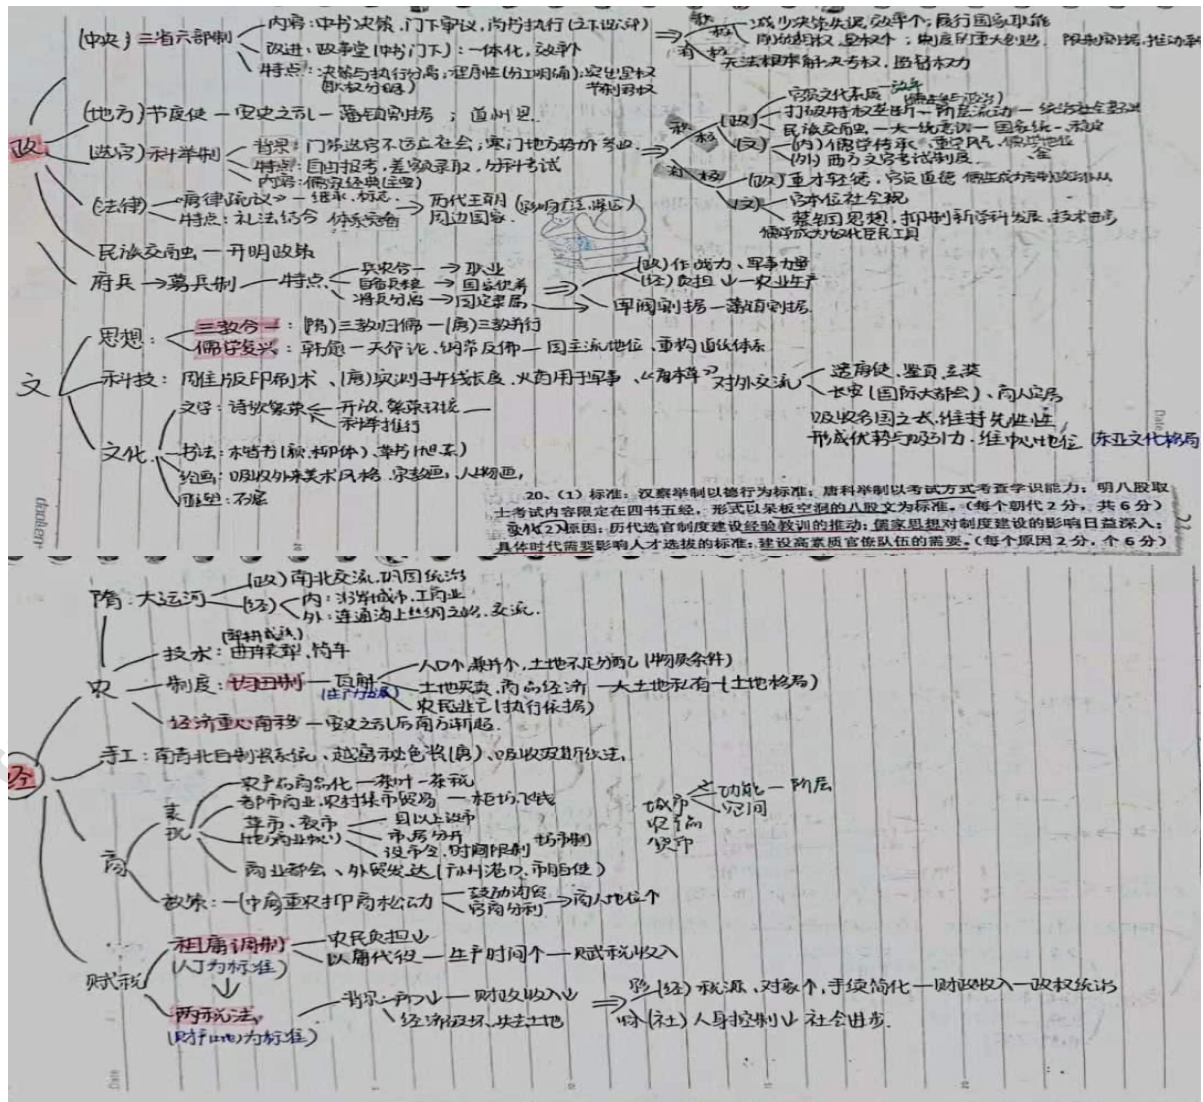 (中央) 三省六部制
内容:中书决策、门下审议、尚书执行
改进:政事堂(中书门下):一体化,效率个
特点:决策与执行分离;程序性(分工明确);
⇒
减少决策失误,效率个;履行国家职能
无法根本解决专权,
政
(地方)节度使—安史之乱—藩镇割据;道州县
(选官)科举制
背景:门第选官不适应社会;寒门地方势力
特点:自由报考,差额录取,分科考试
内容:儒家经典(主要)
(政)
官员文化素质
打破特权垄断—阶层流动—统治社会基础
民族交融—大一统意识—国家统一、稳定
(文)
(内)儒学传承、重学风气、
(外)西方文官考试制度.
(政)重才轻德,官员道德
(文)
官本位社会观
禁锢思想,抑制新学科发展、技术进步
儒学成为奴化臣民工具
(法律)
《唐律疏议》—继承、标志
特点:礼法结合 体系完备
历代王朝
周边国家.
民族交融—开明政策
府兵→募兵制—特点
兵农合一→职业
自备兵粮→国家供养
将兵分离→固定隶属
⇒
(政)作战力、军事力量
(经)负担少—农业生产
军阀割据—藩镇割据.
文
思想:
三教合一:(隋)三教归儒—(唐)三教并行
儒学复兴:韩愈—天命论、纲常反佛—固主流地位、重构道统体系
科技:雕住版印刷术、(唐)实测子午线长度、火药用于军事、《唐本草》
对外交流
遣唐使、鉴真、玄奘
长安(国际大都会)、商人定居
吸收各国之长,维持先进性,
形成优势与吸引力.维中心地位(东亚文化格局
文化
文学:诗歌繁荣
开放、繁荣环境
科举推行
书法:楷书(颜、柳体)、草书(旭、素)
绘画:吸收外来美术风格.宗教画,人物画,
雕塑:石窟
20、(1)标准:汉察举制以德行为标准;唐科举制以考试方式考查学识能力;明八股取
士考试内容限定在四书五经,形式以呆板空洞的八股文为标准。(每个朝代2分,共6分)
变化(2)原因:历代选官制度建设经验教训的推动;儒家思想对制度建设的影响日益深入;
具体时代需要影响人才选拔的标准;建设高素质官僚队伍的需要。(每个原因2分,个6分)
隋:大运河
(政)南北交流,巩固统治
(经)
内:沿岸城市、工商业
外:连通海上丝绸之路、交流.
经
农
技术:曲辕犁、筒车
制度:均田制—瓦解
(生产力发展)
人口个,兼并个,土地不足分配(物质条件)
土地买卖、商品经济—大土地私有(土地格局)
农民逃亡(执行依据)
经济重心南移—安史之乱后南方渐超.
手工:南青北白制瓷系统、越窑秘色瓷(唐)、吸收波斯织法,
商
表现
农产品商品化—茶叶—茶税
都市商业,农村集市贸易—柜坊、飞钱
草市、夜市
(地方商业规则)
县以上设市
市、坊分开
设市令,时间限制
坊市制
商业都会、外贸发达(广州港口、市舶使)
城市
功能—阶层
空间
农产品
货币
政策:—(中唐重农抑商松动
鼓励海贸
官商分利
→商人地位个
赋税
租庸调制
(人丁为标准)
农民负担少
以庸代役—生产时间个—赋税收入
两税法
(财产土地)为标准)
财政收入少
经济破坏、失去土地
⇒
(经)税源,对象个,手续简化—财政收入—政权统治
(社)人身控制少 社会进步.